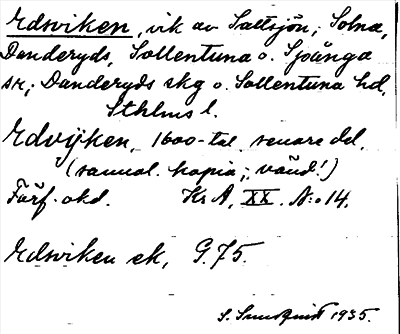 Edsviken, vik av Saltsjön; Solna,
Danderyds, Sollentuna o. Spånga
snr; Danderyds skg o. Sollentuna hd,
Sthlms l.
Edvijken, 1600-tal senare del.
(samt. kopia; vänd!)
Förf. okd. Kr A, XX. N:o 14.
Edsviken ek, G. 75.
S. Sundquist 1935.